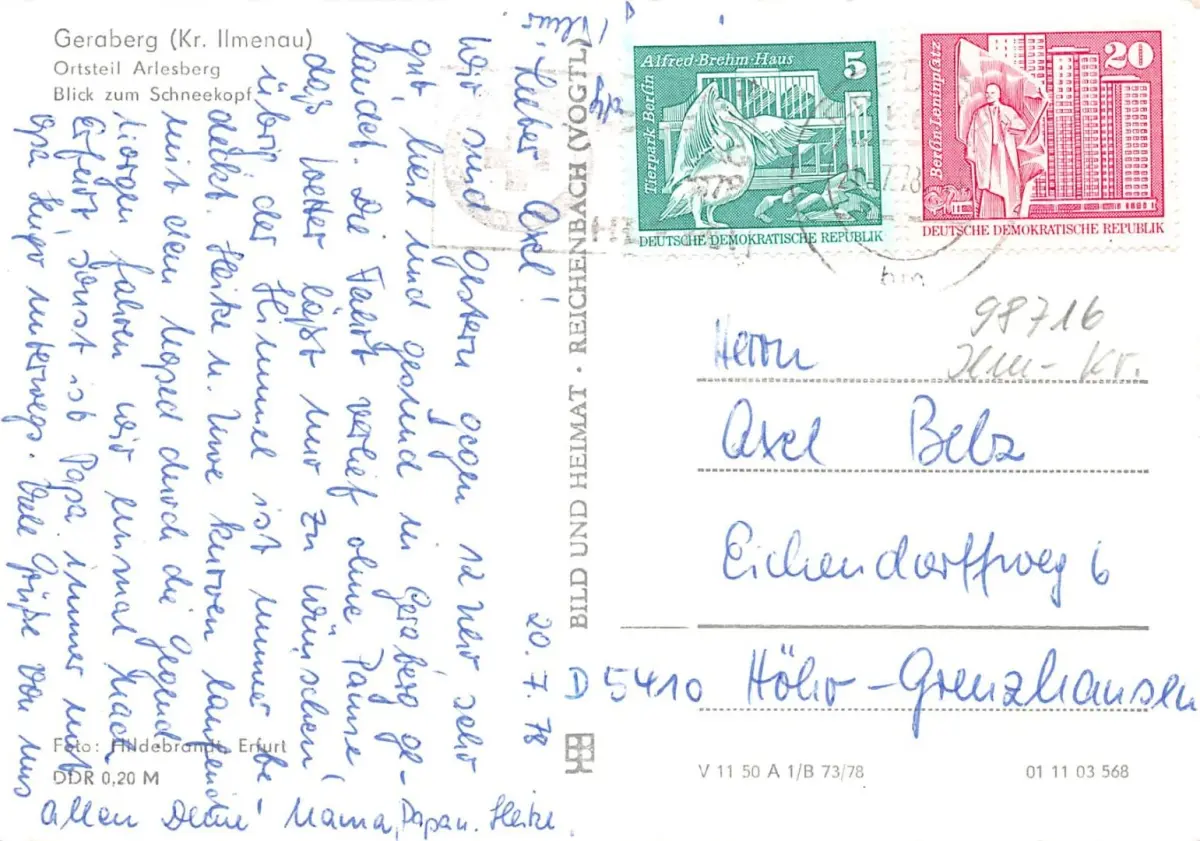 Geraberg (Kr. Ilmenau)
Ortsteil Arlesberg
Blick zum Schneekopf
20. 7. 78
Lieber Axel!
Wir sind gestern gegen 12 Uhr sehr
gut, heil und gesund in Geraberg ge-
landet. Die Fahrt verlief ohne Panne,
das Wetter läßt nur zu wünschen
übrig, der Himmel ist immer be-
deckt. Heike u. Uwe kurven laufend
mit dem Moped durch die Gegend
Morgen fahren wir einmal nach
Erfurt sonst ist Papa immer mit
Opa Hugo unterwegs. Viele Grüße von uns
allen Deine Mama, Papa u. Heike.
Foto: Hildebrandt, Erfurt
DDR 0,20 M
BILD UND HEIMAT · REICHENBACH (VOGTL)
Tierpark Berlin
Alfred-Brehm-Haus
5
DEUTSCHE DEMOKRATISCHE REPUBLIK
Berlin-Leninplatz
20
DEUTSCHE DEMOKRATISCHE REPUBLIK
98716
Ilm-Kr.
Herrn
Axel Belz
Eichendorffweg 6
D 5410 Höhr-Grenzhausen
V 11 50 A 1/B 73/78
01 11 03 568